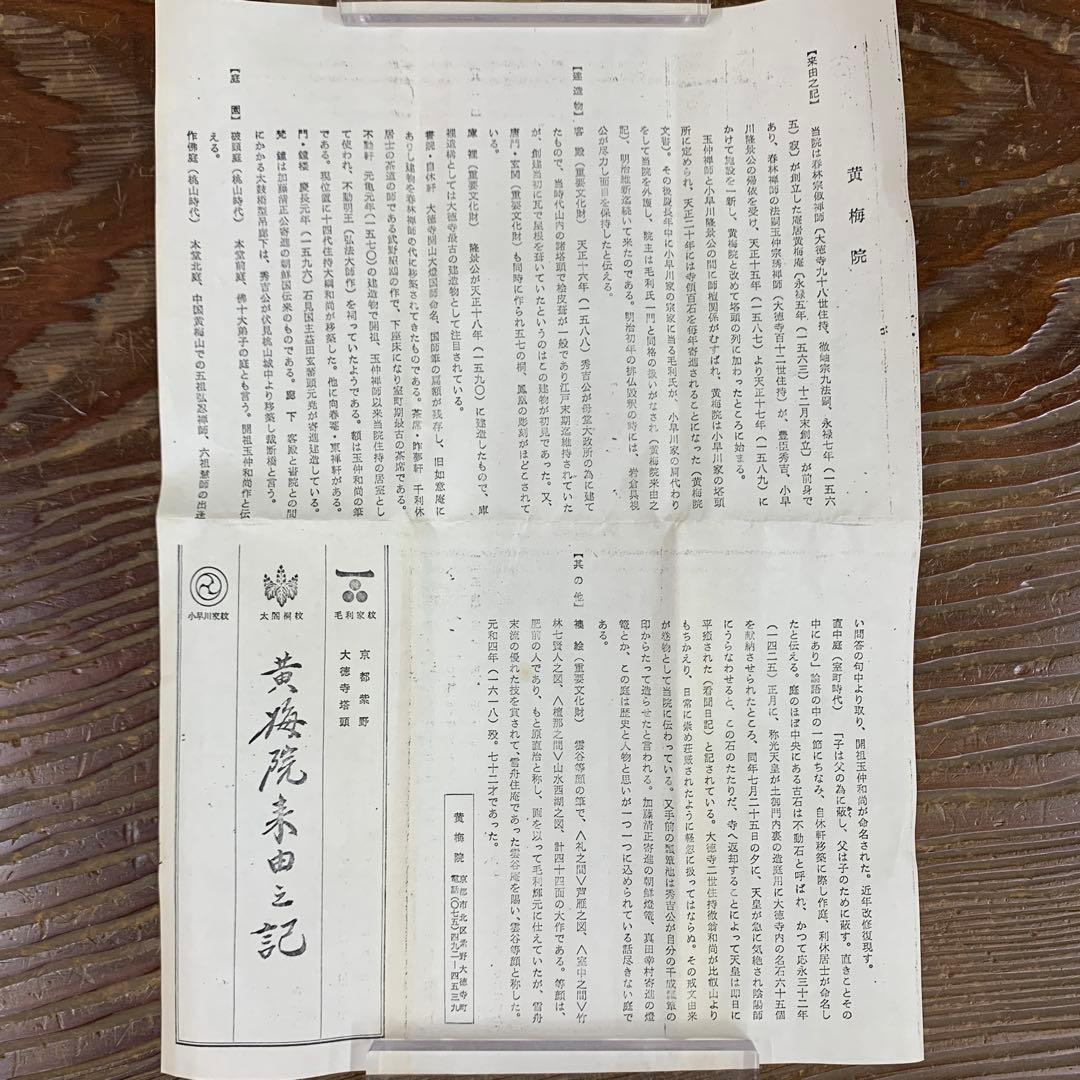 黄梅院
【来由之記】
当院は春林宗俶禅師(大徳寺九十八世住持、徹岫宗九法嗣、永禄七年(一五六
五)寂)が創立した庵居黄梅庵(永禄五年(一五六三)十二月末創立)が前身で
あり、春林禅師の法嗣玉仲宗琇禅師(大徳寺百十二世住持)が、豊臣秀吉、小早
川隆景公の帰依を受け、天正十五年(一五八七)より天正十七年(一五八九)に
かけて施設を一新し、黄梅院と改めて塔頭の列に加わったところに始まる。
玉仲禅師と小早川隆景公の間に師檀関係がむすばれ、黄梅院は小早川家の塔頭
所に定められ、天正二十年には寺領百石を毎年寄進されることになった(黄梅院
文書)。その後慶長年中に小早川家の宗家に当る毛利氏が、小早川家の肩代わり
をして当院を外護し、院主は毛利氏一門と同格の扱いがなされ(黄梅院来由之
記)、明治維新迄続いて来たのである。明治初年の排仏毀釈の時には、岩倉具視
公が尽力し面目を保持したと伝える。
【建造物】客殿(重要文化財) 天正十六年(一五八八)秀吉公が母堂大政所の為に建て
たもので、当時代山内の諸塔頭で桧皮葺が一般であり江戸末期迄維持されていた
が、創建当初に瓦で屋根を葺いていたというのはこの建物が初見であった。又、
唐門・玄関(重要文化財)も同時に作られ五七の桐、鳳凰の彫刻がほどこされて
いる。
庫裡(重要文化財) 隆景公が天正十八年(一五九〇)に建造したもので、庫
裡遺構としては大徳寺最古の建造物として注目されている。
書院・自休軒 大徳寺開山大燈国師命名、国師筆の扁額が残存し、旧如意庵に
ありし建物を春林禅師の代に移築されてきたものである。茶席・昨夢軒 千利休
居士の茶道の師である武野紹鴎の作で、下座床になり室町期最古の茶席である。
不動軒 元亀元年(一五七〇)の建造物で開祖、玉仲禅師以来当院住持の居室とし
て使われ、不動明王(弘法大師作)を祠っていたようである。額は玉仲和尚の筆
である。現位置に十四代住持大綱和尚が移築した。他に向春菴・東禅軒がある。
門・鐘楼 慶長元年(一五九六)石見国主益田玄蕃頭元尭が寄進建造している。
梵鐘は加藤清正公寄進の朝鮮国伝来のものである。廊下 客殿と書院との間
にかかる太鼓橋型吊廊下は、秀吉公が伏見桃山城中より移築し裁断橋と言う。
【庭園】破頭庭(桃山時代) 本堂前庭、佛十大弟子の庭とも言う。開祖玉仲和尚作と伝
える。
作佛庭(桃山時代) 本堂北庭、中国黄梅山での五祖弘忍禅師、六祖慧師の出逢
い問答の句中より取り、開祖玉仲和尚が命名された。近年改修復現す。
直中庭(室町時代) 「子は父の為に蔽し、父は子のために蔽す。直きことその
中にあり」論語の中の一節にちなみ、自休軒移築に際し作庭、利休居士が命名し
たと伝える。庭のほぼ中央にある古石は不動石と呼ばれ、かつて応永三十二年
(一四二五)正月に、称光天皇が土御門内裏の造庭用に大徳寺内の名石六十五個
を献納させられたところ、同年七月二十五日の夕に、天皇が急に気絶され陰陽師
にうらなわせると、この石のたたりだ、寺へ返却することによって天皇は即日に
平癒された(看聞日記)と記されている。大徳寺二世住持徹翁和尚が比叡山より
もちかえり、日常に崇め荘厳されたように軽忽に扱ってはならぬ。その戒文由来
が巻物として当院に伝わっている。又手前の瓢箪池は秀吉公が自分の千成瓢箪の
印からたって造らせたと言われる。加藤清正寄進の朝鮮燈篭、真田幸村寄進の燈
篭とか、この庭は歴史と人物と思いが一つ一つに込められている話尽きない庭で
ある。
【其の他】襖絵(重要文化財) 雲谷等顔の筆で、〈礼之間〉芦雁之図、〈室中之間〉竹
林七賢人之図、〈檀那之間〉山水西湖之図、計四十四面の大作である。等顔は、
肥前の人であり、もと原直治と称し、画を以って毛利輝元に仕えていたが、雪舟
末流の優れた技を賞されて、雪舟住庵であった雲谷庵を賜い、雲谷等顔と称した。
元和四年(一六一八)歿。七十二才であった。
黄梅院 京都市北区紫野大徳寺町
電話(〇七五)四九二ー四五三九
毛利家紋
京都紫野
大徳寺塔頭
太閤桐紋
黄梅院来由之記
小早川家紋